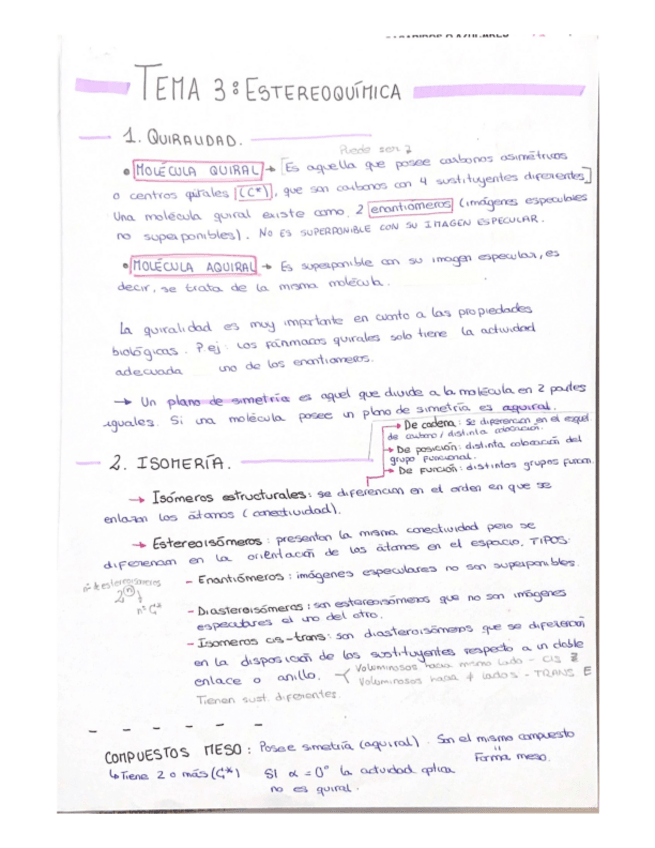 SACÁRIDOS O AZÚCARES
TEMA 3: ESTEREOQUÍMICA
1. QUIRALIDAD.
Puede ser
• MOLÉCULA QUIRAL → [Es aquella que posee carbonos asimétricos
o centros quirales (C*), que son carbonos con 4 sustituyentes diferentes]
Una molécula quiral existe como 2 enantiómeros (imágenes especulares
no superponibles). NO ES SUPERPONIBLE CON SU IMAGEN ESPECULAR.
• MOLÉCULA AQUIRAL → Es superponible con su imagen especular, es
decir, se trata de la misma molécula.
La quiralidad es muy importante en cuanto a las propiedades
biológicas. P.ej: Los fármacos quirales solo tiene la actividad
adecuada uno de los enantiomeros.
→ Un plano de simetría es aquel que divide a la molécula en 2 partes
iguales. Si una molécula posee un plano de simetría es aquiral.
→ De cadena: Se diferencian en el esquel.
de carbono / distinta colocación.
→ De posición: distinta colocación del
grupo funcional.
→ De función: distintos grupos funcion.
2. ISOMERÍA.
→ Isómeros estructurales: se diferencian en el orden en que se
enlazan los átomos (conectividad).
→ Estereoisómeros: presentan la misma conectividad pero se
diferencian en la orientación de los átomos en el espacio. TIPOS:
- Enantiómeros: imágenes especulares no son superponibles.
nº de estereoisómeros
2ⁿ
nº C*
- Diasteroisómeros: son estereoisómeros que no son imágenes
especulares el uno del otro.
- Isomeros cis-trans: son diasteroisómeros que se diferencian
en la disposición de los sustituyentes respecto a un doble
enlace o anillo. Voluminosos hacia mismo lado - CIS Z
Voluminosos hacia ≠ lados - TRANS E
Tienen sust. diferentes.
COMPUESTOS MESO: Posee simetría (aquiral). Son el mismo compuesto
↳ Tiene 2 o más (C*) SI α = 0° la actividad optica Forma meso.
no es quiral.